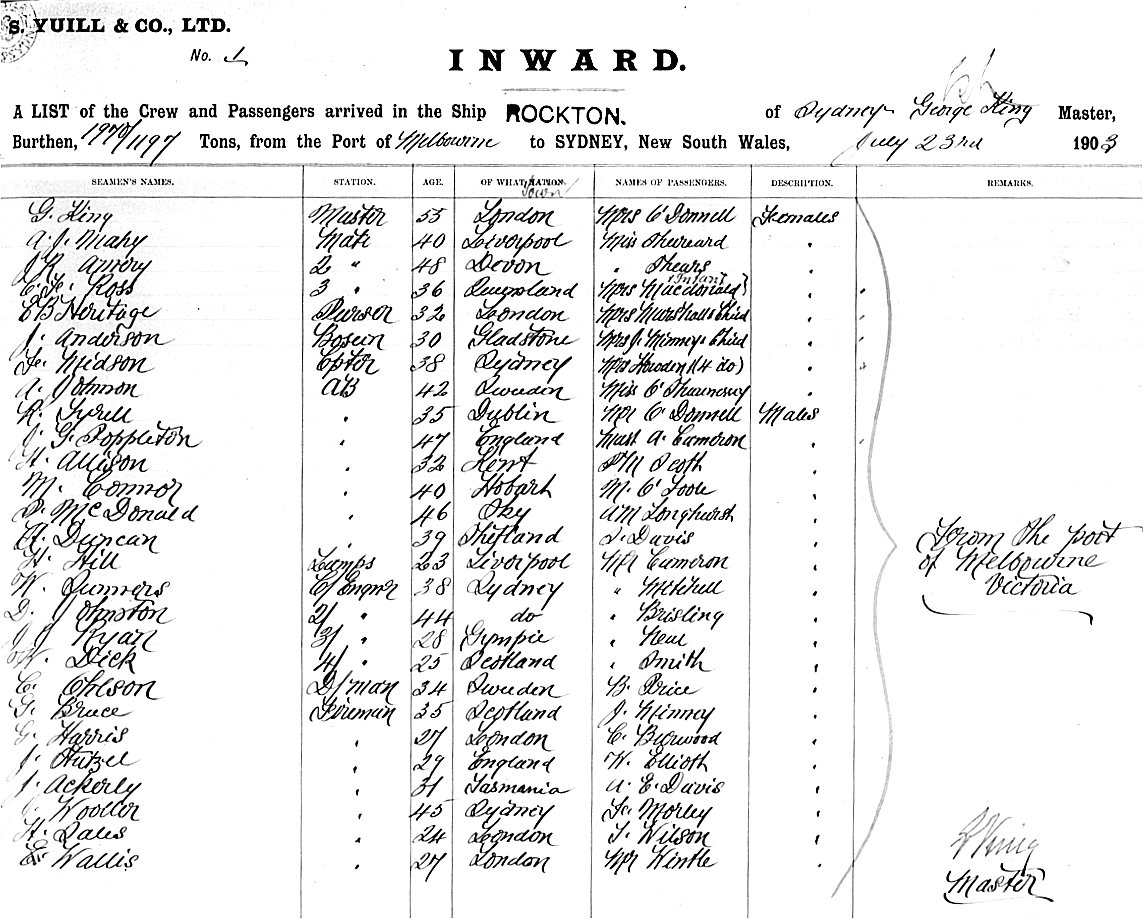 S. YUILL & CO., LTD.
No. 1
INWARD.
A LIST of the Crew and Passengers arrived in the Ship ROCKTON. of Sydney George King Master,
Burthen, 1970/1197 Tons, from the Port of Melbourne to SYDNEY, New South Wales, July 23rd 1903
SEAMEN'S NAMES. STATION. AGE. OF WHAT NATION. Town NAMES OF PASSENGERS. DESCRIPTION. REMARKS.
G. King Master 55 London Mrs O'Donnell Females
A. J. Mate 40 Liverpool Miss
J R Amory 2 " 48 Devon " Shears
Ross 3 " 36 Queensland Mrs Macdonald & Infant
E B Heritage Purser 32 London Mrs Marshall & Child
J. Anderson Bosun 30 Gladstone Mrs J. Minney & Child
Fr. Midson 38 Sydney Mrs Howden (4 do)
A. Johnson AB 42 Sweden Miss O'Shaunessy
R. Tyrell " 35 Dublin Mr O'Donnell Males
J. G. Poppleton " 47 England Mast A. Cameron "
H. Allison " 32 Kent Scott "
M. Connor " 40 Hobart M. O'Toole "
D. McDonald " 46 A M Longhurst "
A. Duncan " 39 Shetland Davis "
H. Hill Lamps 23 Liverpool Mr Cameron "
W. Summers C/Engnr 38 Sydney " Mitchell "
D. Johnston 2/ " 44 do " Brisling "
J J Ryan 3/ " 28 Gympie " "
W. Dick 4/ " 25 Scotland " Smith "
C. Ohlson D/man 34 Sweden B. Price "
G. Bruce Fireman 35 Scotland J. Minney "
G. Harris " 27 London C. Burwood "
J. Hutzel " 29 England W. Elliott "
J. Ackerly " 31 Tasmania A. E. Davis "
J. Wooller " 45 Sydney Fr. Morley "
H. " 24 London T. Wilson "
E. Wallis " 27 London Mr Wintle "
From the port
of Melbourne
Victoria
G King
Master